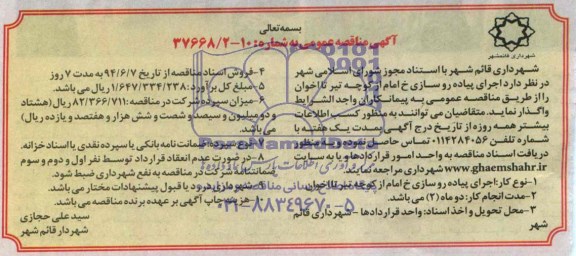 بسمه‌تعالی
آگهی مناقصه عمومی به شماره: ۱۰-۳۷۶۶۸/۲
شهرداری قائمشهر
شهرداری قائم شهر با استناد مجوز شورای اسلامی شهر
در نظر دارد اجرای پیاده رو سازی خ امام از کوچه تیر تا اخوان
را از طریق مناقصه عمومی به پیمانکاران واجد الشرایط
واگذار نماید. متقاضیان می توانند به منظور کسب اطلاعات
بیشتر همه روزه از تاریخ درج آگهی بمدت یک هفته با
شماره تلفن ۰۱۱۴۲۸۴۰۵۶ تماس حاصل نموده و به منظور
دریافت اسناد مناقصه به واحد امور قراردادها و یا به سایت
www.ghaemshahr.ir شهرداری مراجعه نمایند.
۱-نوع کار: اجرای پیاده رو سازی خ امام از کوچه تیر تا اخوان
۲-مدت انجام کار: دو ماه (۲) می باشد.
۳-محل تحویل و اخذ اسناد: واحد قراردادها - شهرداری قائم
شهر
۴-فروش اسناد مناقصه از تاریخ ۹۴/۶/۷ به مدت ۷ روز
۵-مبلغ کل برآورد: ۱/۶۴۷/۳۳۴/۲۳۸ ریال می باشد.
۶-میزان سپرده شرکت در مناقصه: ۸۲/۳۶۶/۷۱۱ ریال (هشتاد
و دو میلیون و سیصد و شصت و شش هزار و هفتصد و یازده ریال)
می باشد.
سپرده ضمانت نامه بانکی یا سپرده نقدی یا اسناد خزانه.
۸-در صورت عدم انعقاد قرارداد توسط نفر اول و دوم و سوم
ضمانتنامه شرکت در مناقصه به نفع شهرداری ضبط شود.
۹-شهرداری در رد یا قبول پیشنهادات مختار می باشد.
۱۰-هزینه چاپ آگهی بر عهده برنده مناقصه می باشد.
سید علی حجازی
شهردار قائم شهر
ParsNamadData
۰۲۱-۸۸۳۴۹۶۷۰-۵